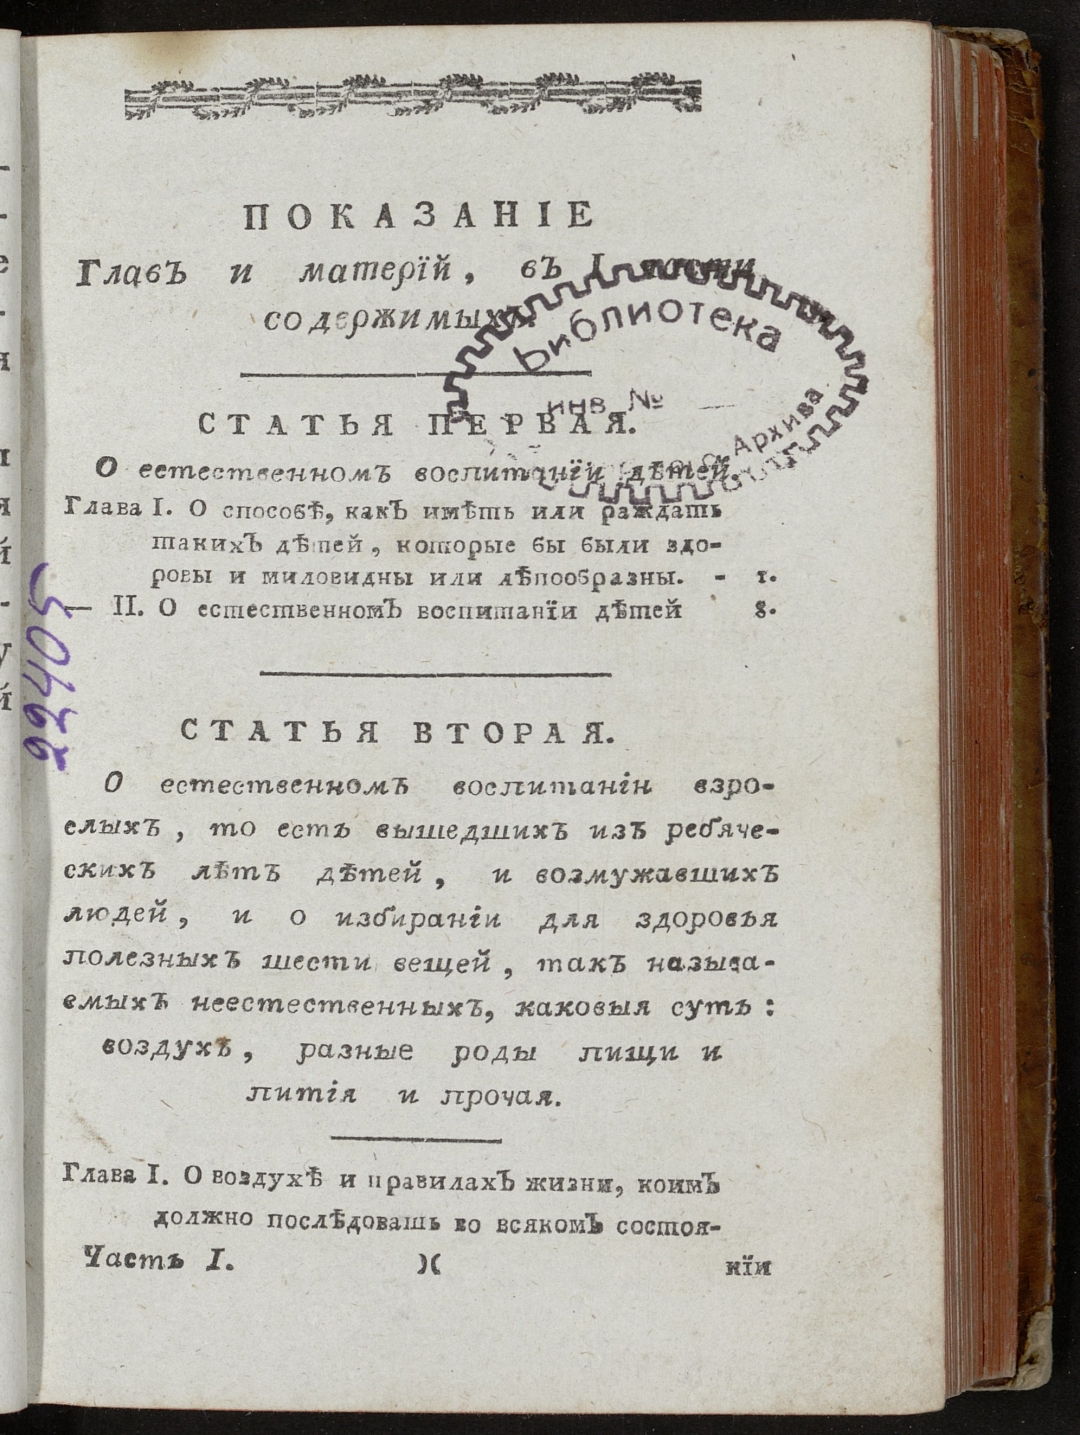 ПОКАЗАНІЕ
Главъ и матерїй, въ I части
содержимыхъ.
Библиотека
инв №
Архива
СТАТЬЯ ПЕРВАЯ.
О естественномъ воспитанїи дѣтей.
Глава I. О способѣ, какъ имѣть или раждать
такихъ дѣтей, которые бы были здо-
ровы и миловидны или лѣпообразны. - 1.
— II. О естественномъ воспитанїи дѣтей 8.
50422
СТАТЬЯ ВТОРАЯ.
О естественномъ воспитанїи взро-
слыхъ, то есть вышедшихъ изъ ребяче-
скихъ лѣтъ дѣтей, и возмужавшихъ
людей, и о избиранїи для здоровья
полезныхъ шести вещей, такъ называ-
емыхъ неестественныхъ, каковыя суть:
воздухъ, разные роды пищи и
питїя и прочая.
Глава I. О воздухѣ и правилахъ жизни, коимъ
должно послѣдовать во всякомъ состоя-
Часть I. )( нїи